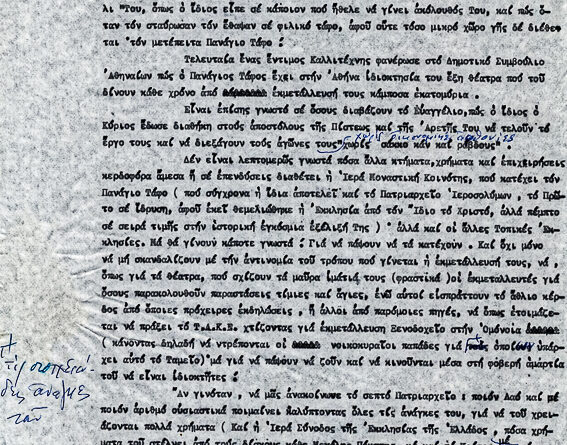 λι "Του, ὅπως ὁ ἴδιος εἶπε σέ κάποιον πού ἤθελε νά γίνει ἀκόλουθός Του, καί πώς ὅ-
ταν τόν σταύρωσαν τόν ἔθαψαν σέ φιλικό τάφο, ἀφοῦ οὔτε τόσο μικρό χῶρο γῆς δέ διέθε-
ται ὁ τόν μετέπειτα Πανάγιο Τάφο :
Τελευταία ἕνας ἔντιμος Καλλιτέχνης φανέρωσε στό Δημοτικό Συμβούλιο
Ἀθηναίων πώς ὁ Πανάγιος Τάφος ἔχει στήν Ἀθήνα ἰδιοκτησία του ἕξη θέατρα πού τοῦ
δίνουν κάθε χρόνο ἀπό ἐκμετάλλευσή τους κάμποσα ἑκατομύρια .
Εἶναι ἐπίσης γνωστό σέ ὅσους διαβάζουν τό Εὐαγγέλιο, πώς ὁ ἴδιος ὁ
Κύριος ἔδωσε διαθήκη στούς ἀποστόλους τῆς Πίστεως καί τῆς Ἀρετῆς Του νά τελοῦν τό
ἔργο τους καί νά διεξάγουν τούς ἀγῶνες τους "χωρίς σάκκο κἄν καί ράβδους" .
Δέν εἶναι λεπτομερῶς γνωστά πόσα ἄλλα κτήματα, χρήματα καί ἐπιχειρήσεις
κερδοφόρα ἄμεσα ἤ σέ ἐπενδύσεις διαθέτει ἡ Ἱερά Μοναστική Κοινότης, πού κατέχει τόν
Πανάγιο Τάφο ( πού σύγχρονα ἡ ἴδια ἀποτελεῖ καί τό Πατριαρχεῖο Ἱεροσολύμων, τό Πρῶ-
το σέ ἵδρυση, ἀφοῦ ἐκεῖ θεμελιώθηκε ἡ Ἐκκλησία ἀπό τόν Ἴδιο τό Χριστό, ἀλλά πέμπτο
σέ σειρά τιμῆς στήν ἱστορική ἐγκόσμια ἐξέλιξή Της ) · ἀλλά καί οἱ ἄλλες Τοπικές Ἐκ-
κλησίες. Νά θά γίνουν κάποτε γνωστά : Γιά νά πάψουν νά τά κατέχουν . Καί ὄχι μόνο
νά μή σκανδαλίζουν μέ τήν ἀντινομία τοῦ τρόπου πού γίνεται ἡ ἐκμετάλλευσή τους, νά ,
ὅπως γιά τά θέατρα, πού σχίζουν τά μαῦρα ἱμάτιά τους (φραστικά )οἱ ἐκμεταλλευτές γιά
ὅσους παρακολουθοῦν παραστάσεις τίμιες καί ἅγιες, ἐνῶ αὐτοί εἰσπράττουν τό ἄθλιο κέρ-
δος ἀπό ὅποιες πρόχειρες ἐκδηλώσεις , ἤ ἄλλοι ἀπό παρόμοιες πηγές, νά ὅπως ἑτοιμάζε-
ται νά πράξει τό Τ.Α.Κ.Ε. χτίζοντας γιά ἐκμετάλλευση Ξενοδοχεῖο στήν Ὁμόνοια
( κάνοντας δηλαδή νά ντρέπονται οἱ νοικοκυραῖοι παπάδες γιά ὁποίων ὑπάρ-
χει αὐτό τό Ταμεῖο)"μά γιά νά πάψουν νά ζοῦν καί νά κινοῦνται μέσα στή φοβερή ἁμαρτία
τοῦ νά εἶναι ἰδιοκτῆτες :
Ἄν γινόταν , νά μᾶς ἀνακοίνωνε τό σεπτό Πατριαρχεῖο : ποιόν Λαό καί μέ
ποιόν ἀριθμό οὐσιαστικά ποιμαίνει καλύπτοντας ὅλες τίς ἀνάγκες του, γιά νά τοῦ χρει-
άζονται πολλά χρήματα ( Καί ἡ Ἱερά Σύνοδος τῆς Ἐκκλησίας τῆς Ἑλλάδος , πόσα χρή-